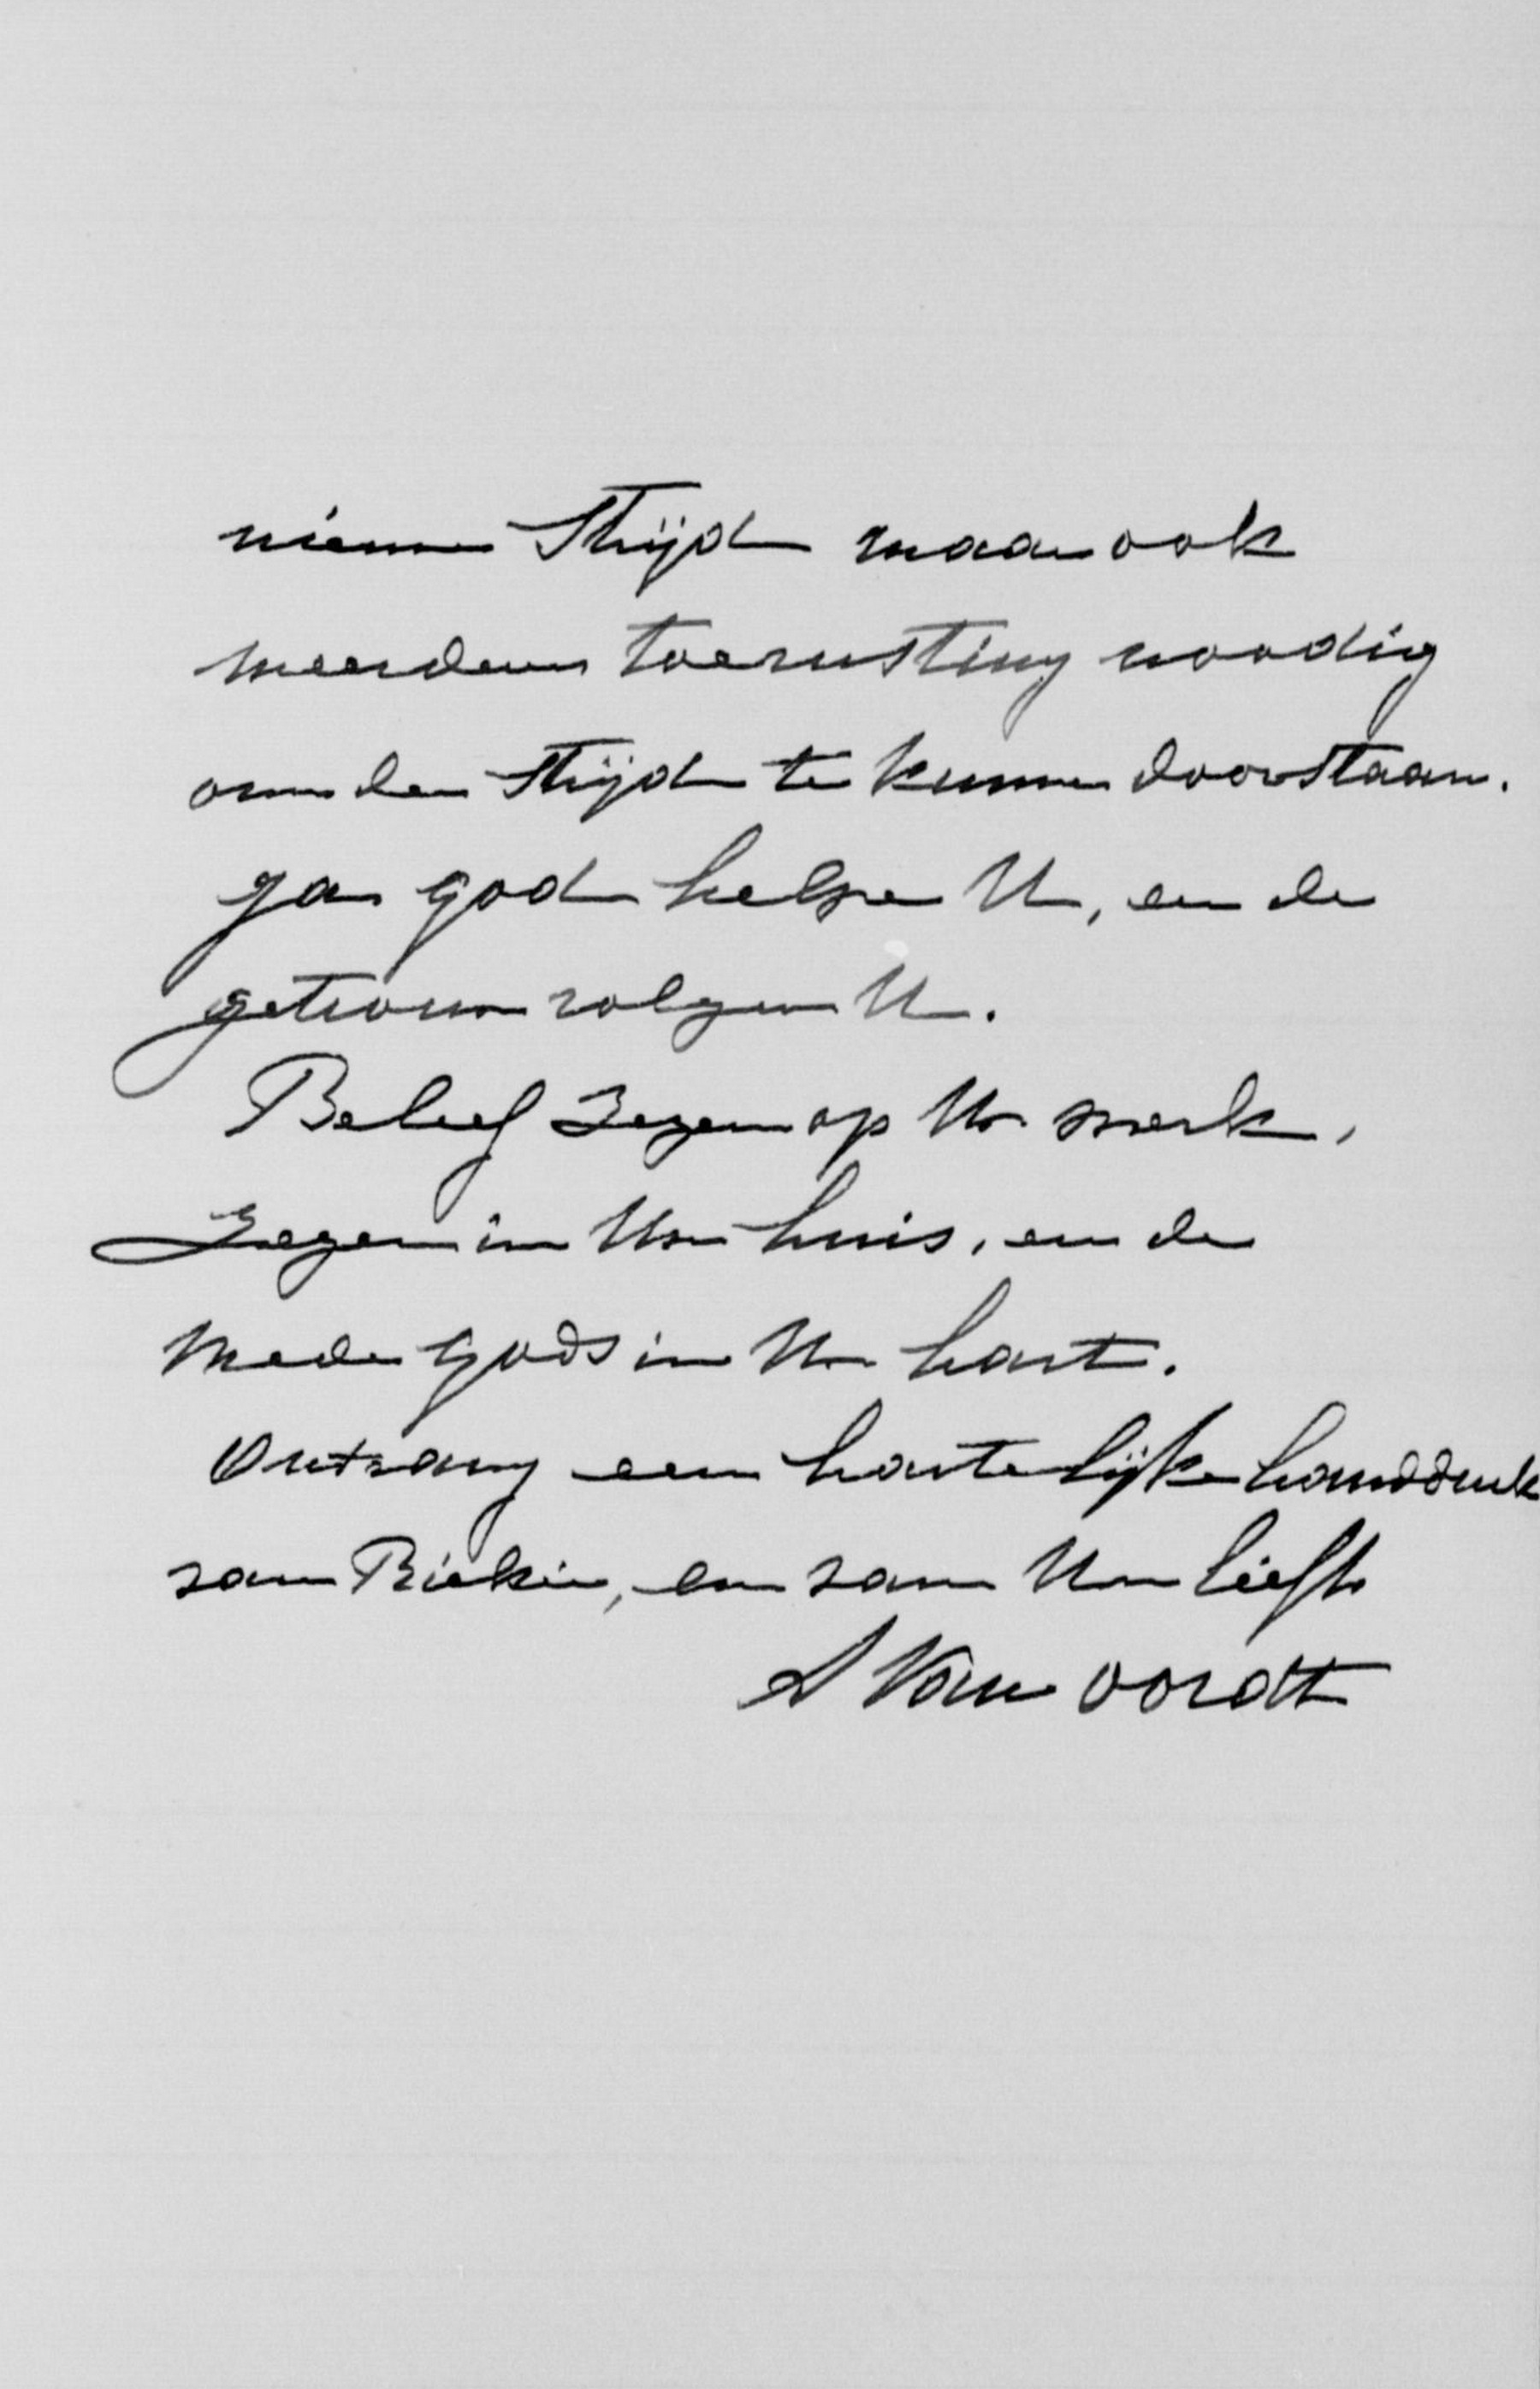 nieuwe Strijd maar ook
meerdere toerusting noodig
om den Strijd te kunnen doorstaan.
Ja God helpe U, en de
getrouwen volgen U.
Beleef Zegen op Uw werk,
Zegen in Uw huis, en de
vrede Gods in Uw hart.
Ontvang een hartelijke handdruk
van Riekie, en van Uw liefh
A Van Oordt